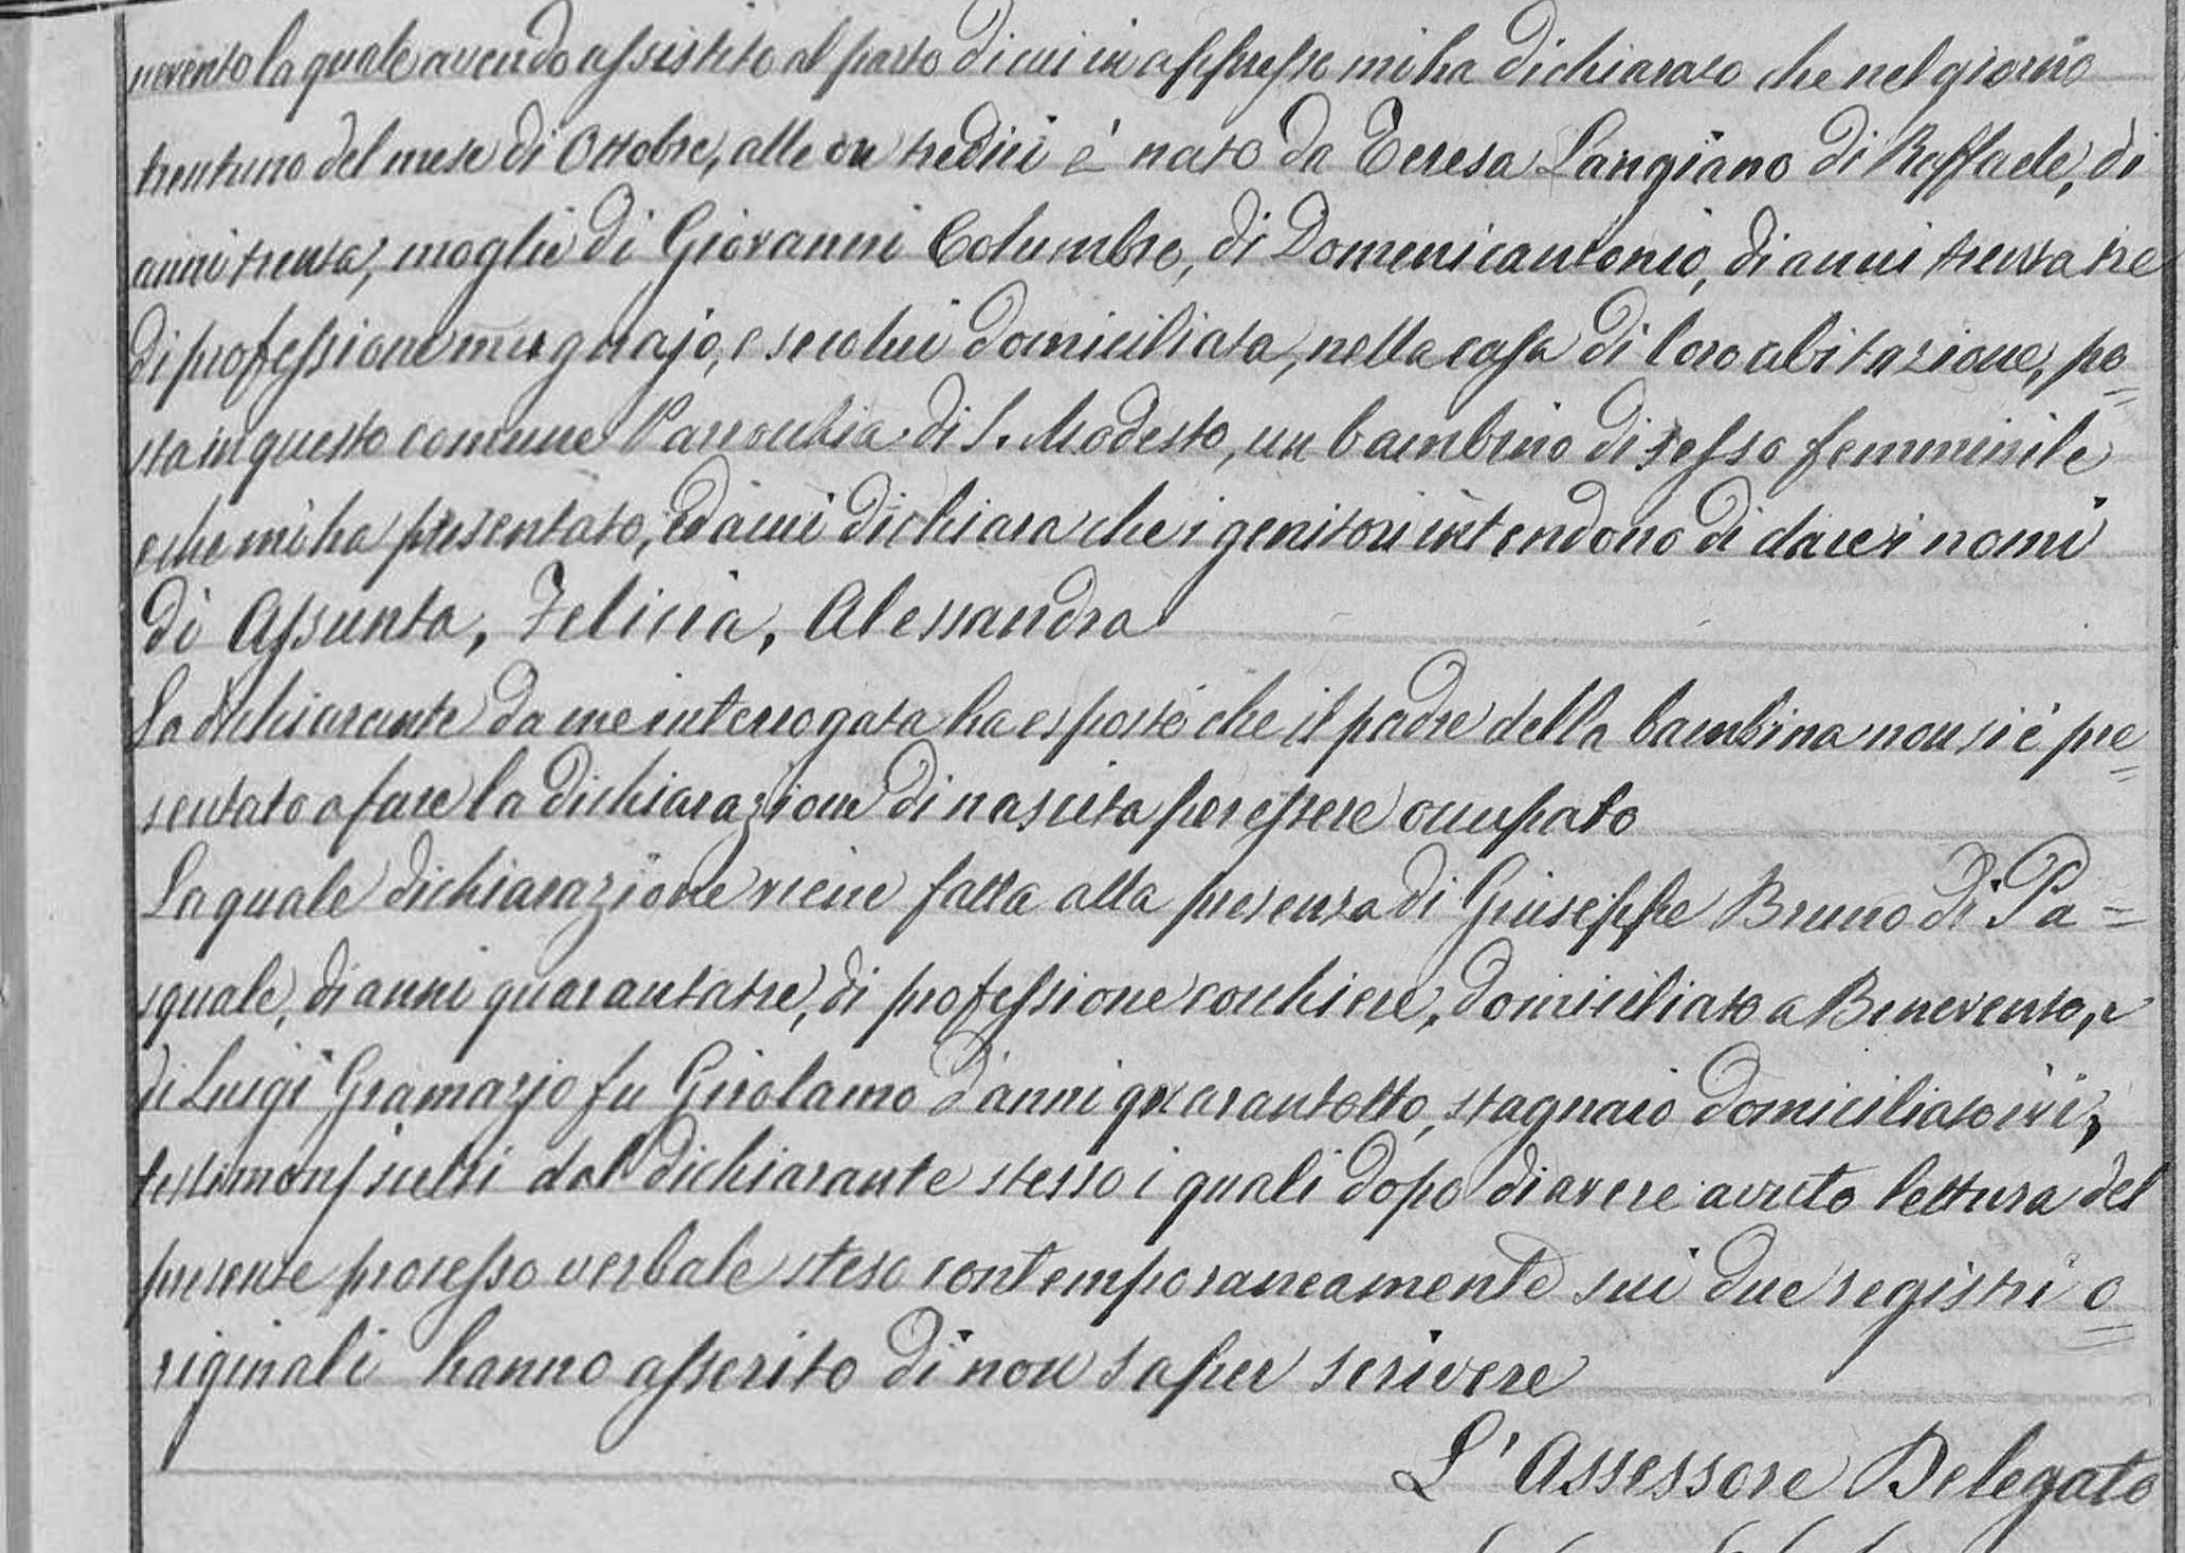 nevento la quale avendo assistito al parto di cui in appresso mi ha dichiarato che nel giorno
trentuno del mese di Ottobre, alle ore tredici è nato da Teresa Langiano di Raffaele, di
anni trenta, moglie di Giovanni Columbro, di Domenicantonio, di anni trenta tre
di professione mugnajo, e seco lui domiciliata, nella casa di loro abitazione, po=
sta in questo comune Parrocchia di S. Modesto, un bambino di sesso femminile
e che mi ha presentato, ed a cui dichiara che i genitori intendono di dare i nomi
di Assunta, Felicia, Alessandra
La dichiarante da me interrogata ha esposto che il padre della bambina non si è pre=
sentato a fare la dichiarazione di nascita per essere occupato
La quale dichiarazione viene fatta alla presenza di Giuseppe Bruno di Pa=
squale, di anni quarantatre, di professione cocchiere, domiciliato a Benevento, e
di Luigi Gramazjo fu Girolamo d'anni quarantotto, stagnaio domiciliato ivi,
testimonj scelti dal dichiarante stesso i quali dopo di avere avuto lettura del
presente processo verbale steso contemporaneamente sui due registri o=
riginali hanno asserito di non saper scrivere
L'Assessore Delegato